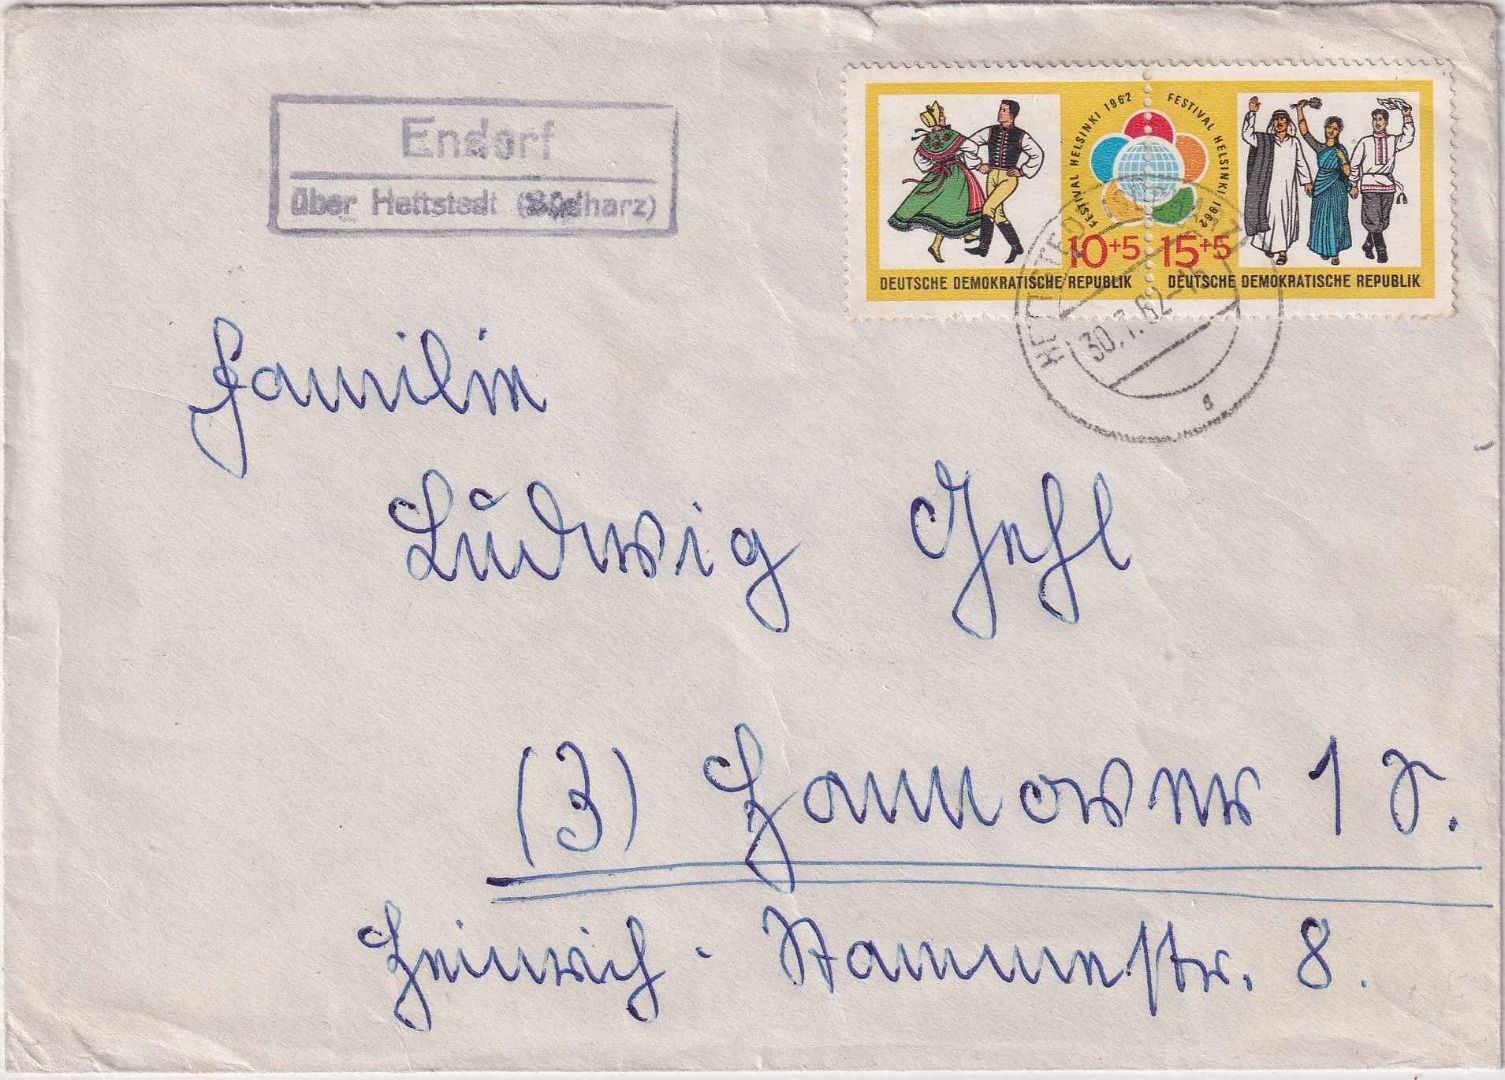 Endorf
über Hettstedt (Südharz)
FESTIVAL HELSINKI 1962
10+5
DEUTSCHE DEMOKRATISCHE REPUBLIK
FESTIVAL HELSINKI 1962
15+5
DEUTSCHE DEMOKRATISCHE REPUBLIK
30.7.62-15
Familie
Ludwig Gehl
(3) Hannover 1 S.
Heinrich-Stammestr. 8.